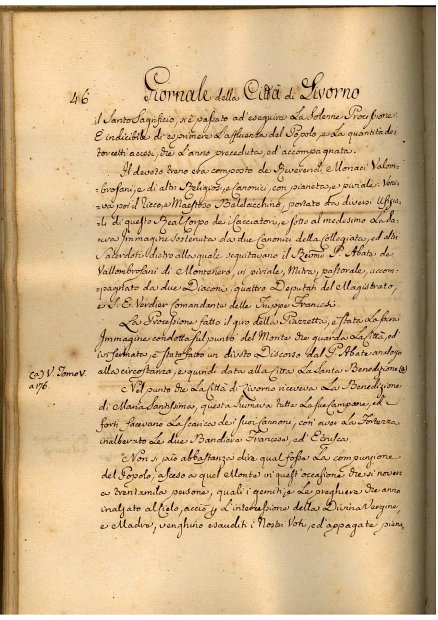 46 Giornale della Città di Livorno
il Santo Sagrifizio, si è passato ad eseguire La Solenne Processione.
E indicibile di esprimere L'affluenza del Popolo, e La quantità dei
torcetti accesi, che L'anno preceduta, ed accompagnata.
Il devoto treno era composto de Reverendi Monaci Valom-
brosani, e di altri Religiosi, e Canonici, con pianeta, e piviale. Veni-
va poi il ricco, e Maestoso Baldacchino, portato da diversi Uffizia-
li di questo Real Corpo dei Cacciatori, e sotto al medesimo La Sa-
cra Immagine sostenuta da due Canonici della Collegiata, ed altri
Sacerdoti; dietro alla quale seguitavano il Rev:mo P. Abate de
Vallombrosani di Montenero, in piviale, Mitra, pastorale, accom-
pagnato da due Diaconi, quattro Deputati del Magistrato,
e S. E. Verdier Comandante delle Truppe Francesi.
La Processione fatto il giro della Piazzetta, e stata La Sacra
Immagine condotta sul punto del Monte che guarda La Città, ed
ivi fermata, e stato fatto un divoto Discorso dal P. Abate analogo
alla circostanza, e quindi data alla Città La Santa Benedizione (a)
(a) V. Tomo V.
a 176.
Nel punto che La Città di Livorno riceveva La Benedizione
di Maria Santissima, questa suonava tutte Le sue Campane, ed i
forti facevano La scarica dei suoi Cannoni, con aver La Fortezza
inalberato Le due Bandiere Francese, ed Etrusca.
Non si può abbastanza dire qual fosse La compunzione
del Popolo, asceso a quel Monte in quest'occasione che si novera
a trentamila persone, quali i gemiti, e Le preghiere che anno
inalzato al Cielo, acciò p L'intercessione della Divina Vergine,
e Madre, venghino esauditi i Nostri Voti, ed appagate piena